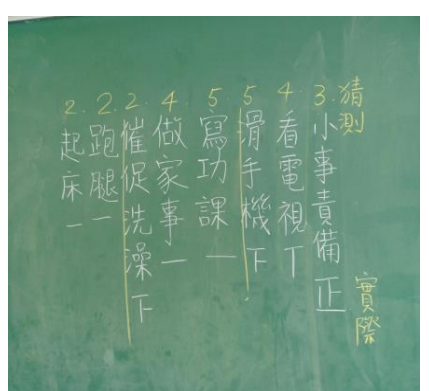 猜測 實際
3. 小事責備 正
4. 看電視 丅
5 滑手機 下
5 寫功課 一
4 做家事 一
2. 催促洗澡 下
2. 跑腿 一
2. 起床 一